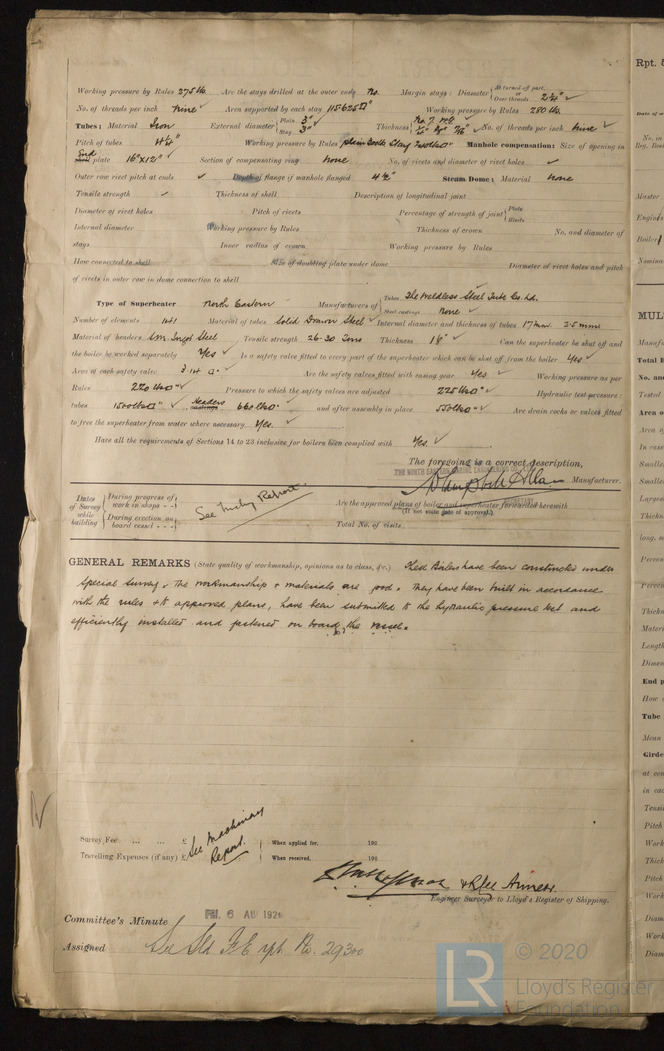 Working pressure by Rules 275 lbs. Are the stays drilled at the outer ends No. Margin stays: Diameter { At turned off part, or Over threads 2¼" ✓
No. of threads per inch nine ✓ Area supported by each stay 115.625 □" Working pressure by Rules 280 lbs.
Tubes: Material Iron External diameter { Plain 3" Stay 3" ✓ Thickness { No. of threads per inch nine ✓
Pitch of tubes 4¼" Working pressure by Rules plain Manhole compensation: Size of opening in
End shell plate 16" x 12" ✓ Section of compensating ring none No. of rivets and diameter of rivet holes ✓
Outer row rivet pitch at ends ✓ Depth of flange if manhole flanged 4½" Steam Dome: Material none
Tensile strength ✓ Thickness of shell Description of longitudinal joint
Diameter of rivet holes Pitch of rivets Percentage of strength of joint { Plate Rivets
Internal diameter Working pressure by Rules Thickness of crown No. and diameter of
stays Inner radius of crown Working pressure by Rules
How connected to shell Size of doubling plate under dome Diameter of rivet holes and pitch
of rivets in outer row in dome connection to shell
Type of Superheater North Eastern Manufacturers of { Tubes The Weldless Steel Tube Co. Ld. Steel castings none ✓
Number of elements 141 Material of tubes Solid Drawn Steel ✓ Internal diameter and thickness of tubes 17 mm. 2.5 mm
Material of headers S.M. Ingot Steel Tensile strength 26-30 Tons Thickness 1⅛" ✓ Can the superheater be shut off and
the boiler be worked separately Yes ✓ Is a safety valve fitted to every part of the superheater which can be shut off from the boiler Yes ✓
Area of each safety valve 3.14 □" ✓ Are the safety valves fitted with easing gear Yes ✓ Working pressure as per
Rules 220 lbs □" ✓ Pressure to which the safety valves are adjusted 225 lbs □" ✓ Hydraulic test pressure:
tubes 1500 lbs □" ✓ Headers castings 660 lbs □" and after assembly in place 550 lbs □" ✓ Are drain cocks or valves fitted
to free the superheater from water where necessary Yes. ✓
Have all the requirements of Sections 14 to 23 inclusive for boilers been complied with Yes. ✓
The foregoing is a correct description,
THE NORTH EASTERN MARINE ENGINEERING CO.
Manufacturer.
Dates of Survey while building { During progress of work in shops - - During erection on board vessel - - -
See Mchy Report.
Are the approved plans of boiler and superheater forwarded herewith
(If not state date of approval.)
SECRETARY
Total No. of visits
GENERAL REMARKS (State quality of workmanship, opinions as to class, &c.) These Boilers have been constructed under
Special Survey. The workmanship & materials are good. They have been built in accordance
with the rules & the approved plans, have been submitted to the hydraulic pressure test and
efficiently installed and fastened on board the vessel.
Survey Fee ... ... £ See Machinery Report. When applied for, 192
Travelling Expenses (if any) £ When received, 192
Engineer Surveyor to Lloyd's Register of Shipping.
Committee's Minute FRI. 6 AU 1926
Assigned See Sld F.E. rpt. No. 29300
© 2020
LR Lloyd's Register
Foundation
Rpt. 5
Date of w
No. in
Reg. Book
Master
Engines
Boilers
Nomina
MUL
Manufa
Total H
No. and
Tested
Area o
Area of
In case
Smalles
Smalles
Larges
Thickn
long. s
Percen
Percen
Thickn
Materi
Length
Dimen
End p
How a
Tube
Mean
Girde
at cen
in eac
Tensi
Pitch
Work
Thick
Pitch
Work
Diam
Work
Diam